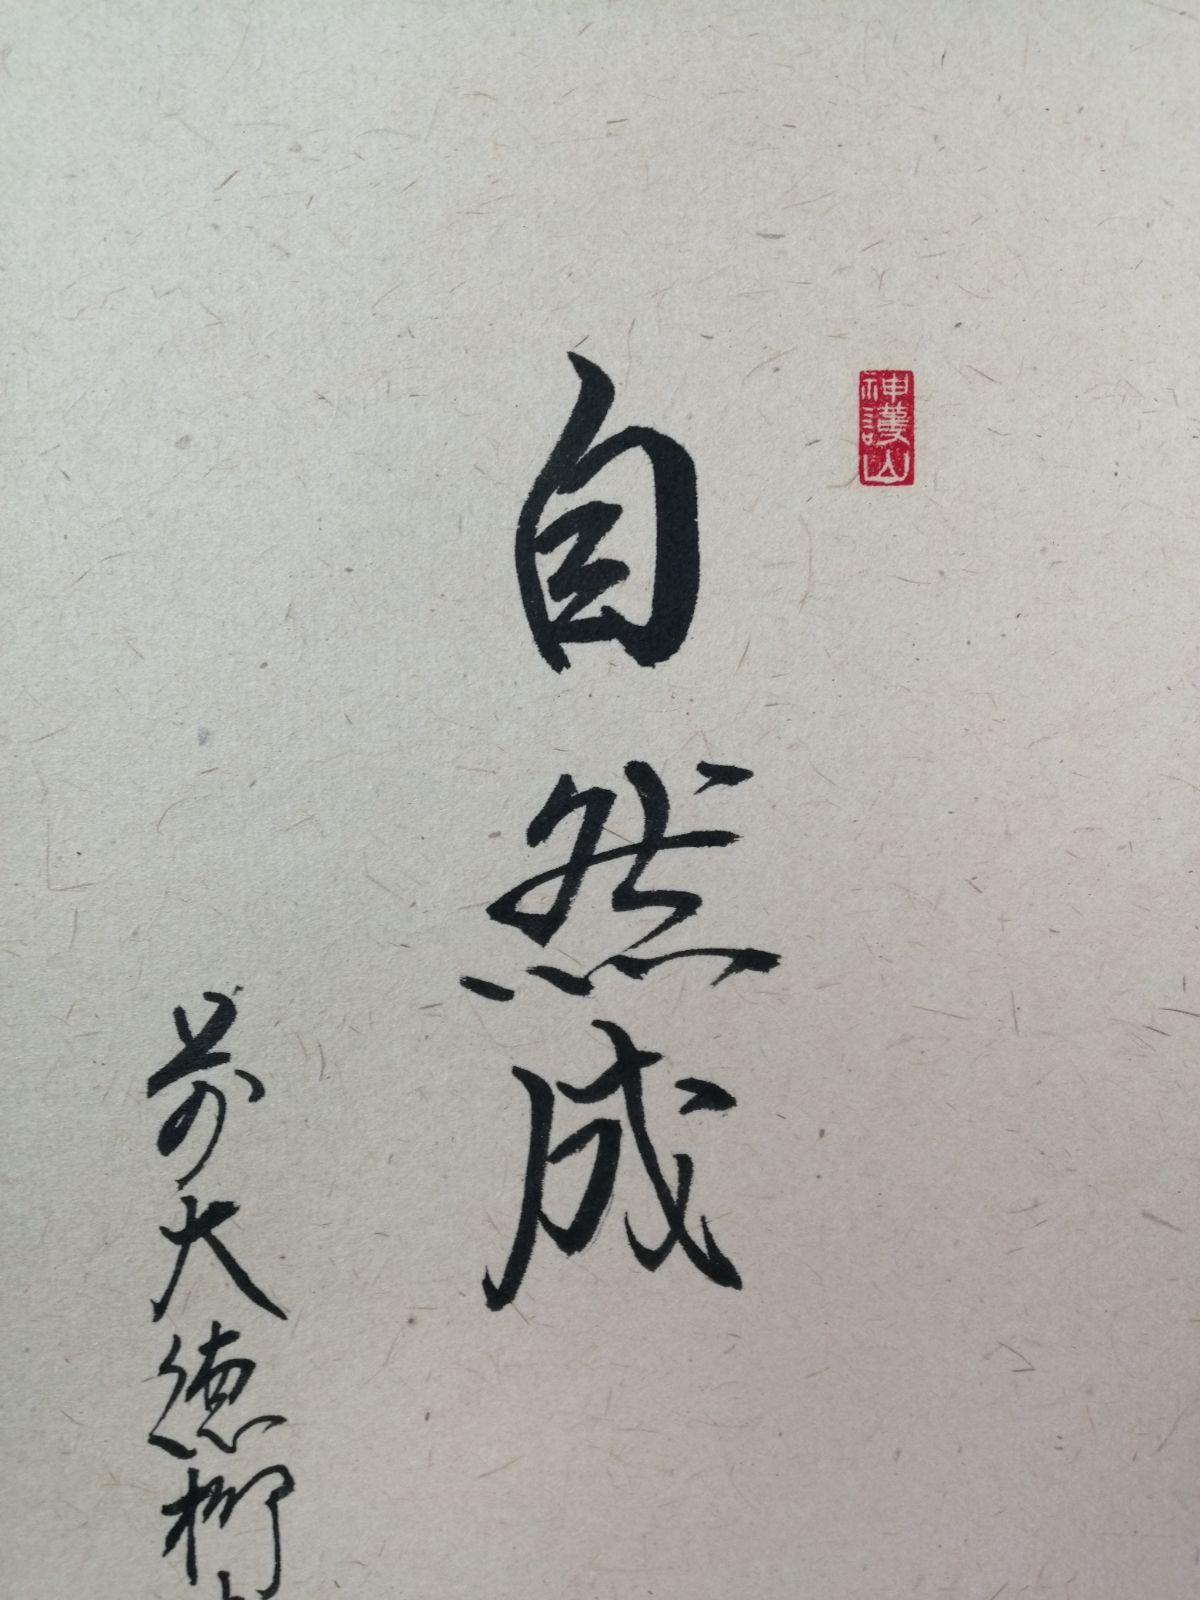 神護山
自然成
前大徳柳